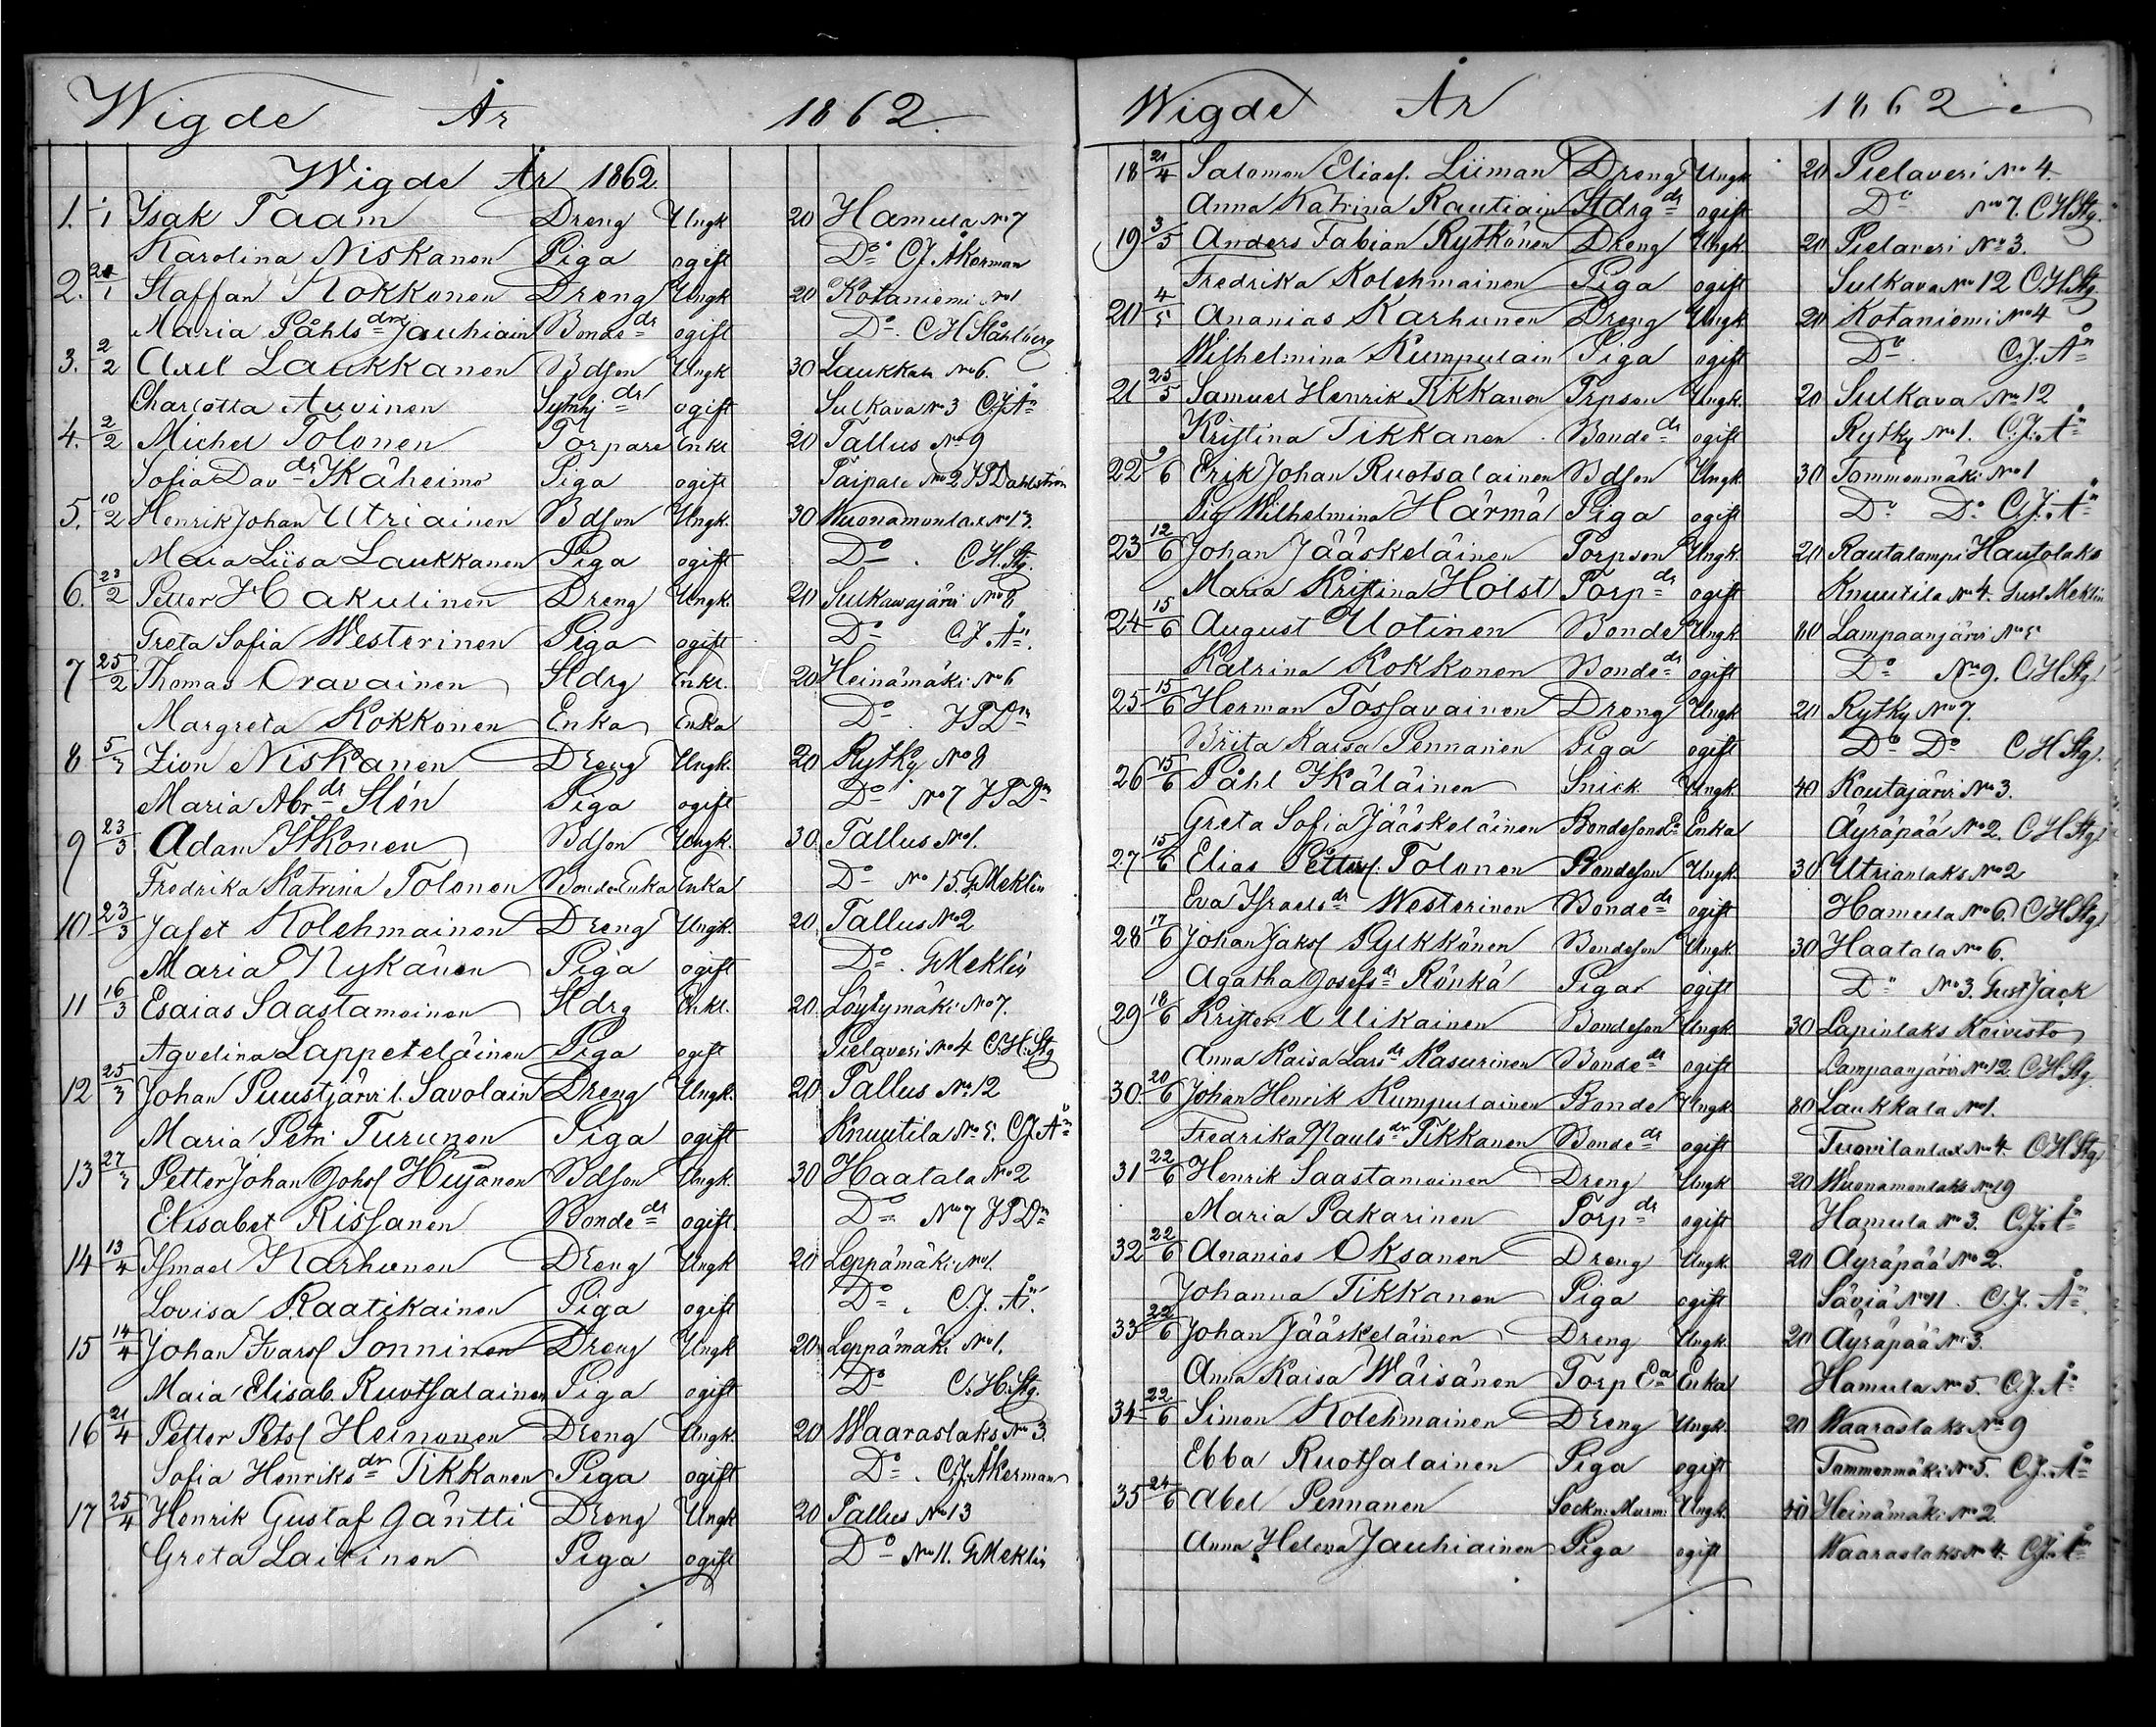 Wigde År 1862.
Wigde År 1862
1. 1/1 Isak Taam Dreng Ungk 20 Hamula No 7
Karolina Niskanen Piga ogift Do C.J. Åkerman
2. 21/1 Staffan Kokkonen Dreng Ungk 20 Kotaniemi No 1
Maria Påhlsdr Jauhiain Bondedr ogift Do. C H Ståhlberg
3. 2/2 Axel Laukkanen Bdson Ungk 30 Laukkala No 6.
Charlotta Auvinen dr ogift Sulkava No 3 C.J.Ån
4. 2/2 Michel Tolonen Torpare Enkl 20 Tallus No 9
Sofia Davdr Ikäheimo Piga ogift Paipale No 2 J P Dahlström
5. 10/2 Henrik Johan Utriainen Bdson Ungk. 30 Wuonamonlax No 13.
Maria Liisa Laukkanen Piga ogift Do. C.H.Stg.
6. 23/2 Petter Hakulinen Dreng Ungk. 20 Sulkavajärvi No 8
Greta Sofia Westerinen Piga ogift Do C.J.Ån.
7 25/2 Thomas Oravainen Stdrg Enkl. 20 Heinämäki No 6
Margreta Kokkonen Enka Enka Do. J P Dm
8 5/3 Zion Niskanen Dreng Ungk. 20 Rytky No 8
Maria Abrdr Slén Piga ogift Do No 7 J P Dm
9 23/3 Adam Itkonen Bdson Ungk. 30 Tallus No 1.
Fredrika Katrina Tolonen Bonde Enka Enka Do No 15. G Meklin
10 23/3 Jafet Kolehmainen Dreng Ungk. 20 Tallus No 2
Maria Nykänen Piga ogift Do. G Meklin
11 16/3 Esaias Saastamoinen Stdrg Enkl. 20 Löytymäki No 7.
Agvelina Lappeteläinen Piga ogift Pielaveri No 4 C.H.Stg
12 25/3 Johan Puustjärvi l. Savolain Dreng Ungk. 20 Tallus No 12
Maria Petri Turunen Piga ogift Knuutila No 5. C.J.Ån
13 27/3 Petter Johan Johs Hujanen Bdson Ungk. 30 Haatala No 2
Elisabet Rissanen Bondedr ogift. Do No 7 J P Dm
14 13/4 Ismael Karhunen Dreng Ungk 20 Leppämäki No 1.
Lovisa Raatikainen Piga ogift Do. C.J.Ån.
15 14/4 Johan Ivars Sonninen Dreng Ungk 20 Leppämäki No 1.
Maia Elisab. Ruotsalainen Piga ogift Do C.H.Stg.
16 21/4 Petter Pets Heinonen Dreng Ungk. 20 Waaraslaks No 3.
Sofia Henriksdr Tikkanen Piga ogift Do. C.J.Åkerman
17 25/4 Henrik Gustaf Gäntti Dreng Ungk 20 Tallus No 13
Greta Laitinen Piga ogift Do No 11. G Meklin
Wigde År 1862
18 21/4 Salomon Elias. Liiman Dreng Ungk 20 Pielaveri No 4.
Anna Katrina Rautiain Stdrgdr ogift Do No 7. C H Stg.
19 3/5 Anders Fabian Rytkönen Dreng Ungk. 20 Pielaveri No 3.
Fredrika Kolehmainen Piga ogift Sulkava No 12 C.H.Stg.
20 4/5 Ananias Karhunen Dreng Ungk 20 Kotaniemi No 4
Wilhelmina Kumpulain Piga ogift Do. C.J.Ån
21 25/5 Samuel Henrik Tikkanen Trpson Ungk. 20 Sulkava No 12
Kristina Tikkanen Bondedr ogift Rytky No 1. C.J.Ån
22 9/6 Erik Johan Ruotsalainen Bdson Ungk. 30 Tommonmäki No 1
Pig Wilhelmina Härmä Piga ogift Do Do C.J.Ån
23 12/6 Johan Jääskeläinen Torpson Ungk. 20 Rautalampi Hautolaks
Maria Kristina Holst Torpdr ogift Knuutila No 4. Gust Meklin
24 15/6 August Uotinen Bonde Ungk 80 Lampaanjärvi No 5
Katrina Kokkonen Bondedr ogift Do No 9. C H Stg.
25 15/6 Herman Tossavainen Dreng Ungk 20 Rytky No 7.
Briita Kaisa Pennanen Piga ogift Do Do C H Stg.
26 15/6 Påhl Ikäläinen Snick Ungk 40 Koutajärvi No 3.
Greta Sofia Jääskeläinen Bondesons Ea Enka Äyräpää No 2. C H Stg.
27 15/6 Elias Petters. Tolonen Bondeson Ungk. 30 Utrianlaks No 2
Eva Israelsdr Westerinen Bondedr ogift Hamula No 6. C H Stg.
28 17/6 Johan Jaks Pylkkönen Bondeson Ungk. 30 Haatala No 6.
Agatha Josefsdr Rönkä Piga ogift Do No 3. Gust Jack
29 18/6 Krister Ollikainen Bondeson Ungk 30 Lapinlaks Koivisto
Anna Kaisa Larsdr Kasurinen Bondedr ogift Lampaanjärvi No 12. C H Stg.
30. 20/6 Johan Henrik Kumpulainen Bonde Ungk. 80 Laukkala No 1.
Fredrika Paulsdr Tikkanen Bondedr ogift Tuovilanlax No 4. C H Stg
31 22/6 Henrik Saastamoinen Dreng Ungk 20 Wuonamonlaks No 19
Maria Pakarinen Torpdr ogift Hamula No 3. C.J.Ån
32 22/6 Ananias Oksanen Dreng Ungk. 20 Äyräpää No 2.
Johanna Tikkanen Piga ogift Säviä No 11. C.J.Ån.
33 22/6 Johan Jääskeläinen Dreng Ungk. 20 Äyräpää No 3.
Anna Kaisa Wäisänen Torp Ea Enka Hamula No 5. C.J.Ån
34 22/6 Simon Kolehmainen Dreng Ungk. 20 Waaraslaks No 9
Ebba Ruotsalainen Piga ogift Tommonmäki No 5. C.J.Ån
35 24/6 Abel Pennanen Sockn: Murm: Ungk. 40 Heinämäki No 2
Anna Helena Jauhiainen Piga ogift Waaraslaks No 4. C.J.Ån